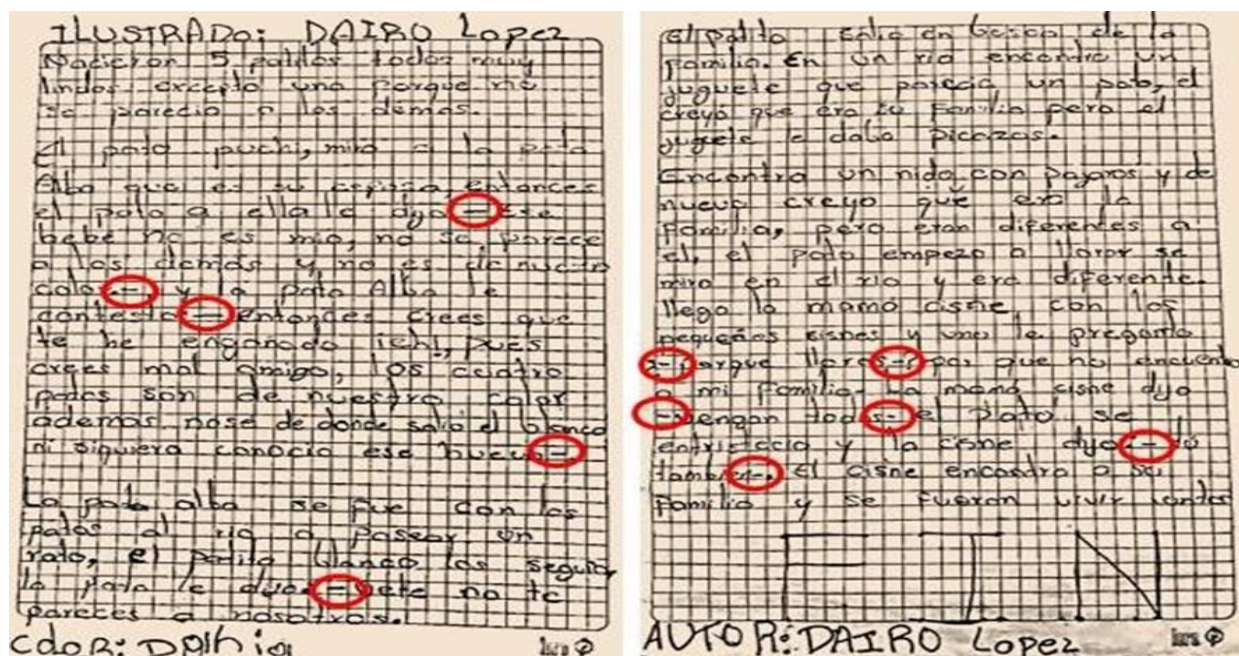 ILUSTRADO: DAIRO Lopez
Nacieron 5 patitos todos muy
lindos excepto uno porque no
se parecio a los demas.
El pato puchi, miro a la pata
Alba que es su esposa, entonces
el pato a ella le dijo - Este
bebe no es mio, no se parece
a los demas y no es de nuestro
color - y la pata Alba le
contesto - entonces crees que
te he enganado ich!, pues
crees mal amigo, los cuatro
patos son de nuestro color
ademas nose de donde salio el blanco
ni siquiera conocia ese huevo -
La pata alba se fue con los
patos al rio a pasear un
rato, el patito blanco los seguia,
la pata le dijo: - vete no te
pareces a nosotros.
cdoR: DAlhia
El patito salio en busca de la
familia. En un rio encontro un
juguete que parecia un pato, el
creyó que era su familia pero el
jugete le daba picazos.
Encontro un nido con pajaros y de
nuevo creyo que era la
familia, pero eran diferentes a
el, el pato empezo a llorar se
miro en el rio y era diferente.
llego la mamá cisne con los
pequeños cisnes y uno le pregunto
- porque lloras - por que no encuentro
a mi familia - la mamá cisne dijo
- vengan todos - el pato se
entristecio y la cisne dijo: - tú
tambien -. El cisne encontro a su
familia y se fueron vivir juntos
FIN
AUTOR: DAIRO Lopez